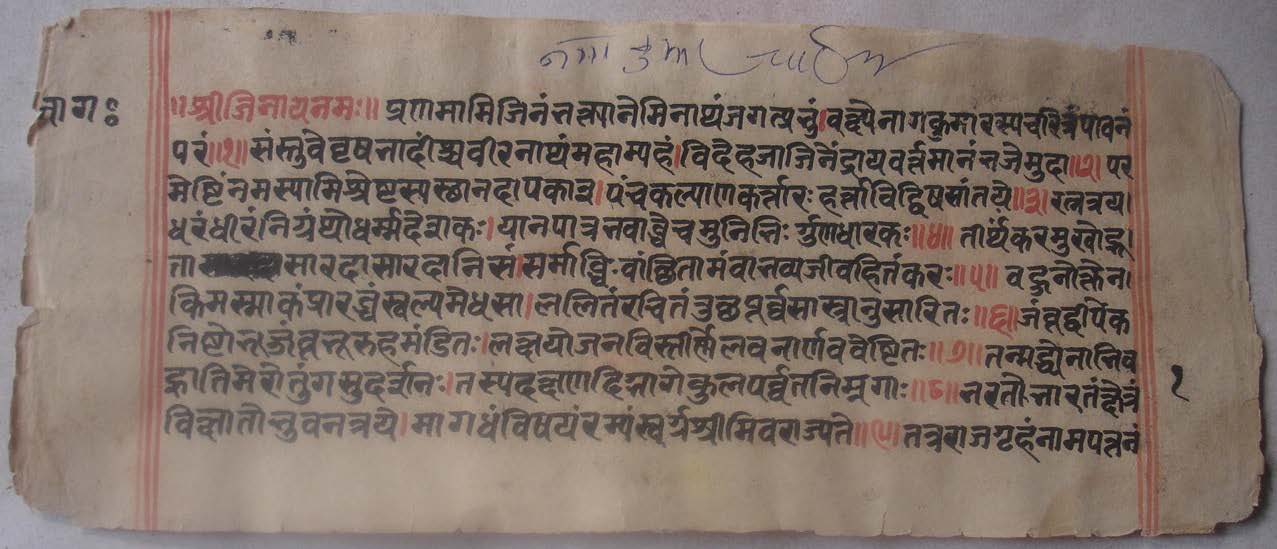 नागकुमार चरित्र
नागः
॥श्रीजिनायनमः॥ प्रणमामिजिनंभक्त्यानेमिनाथंजगत्प्रभुं।वक्ष्येनागकुमारस्यचरित्रंपावनं
परं॥१॥संस्तुवेवृषभादींश्चवीरनाथंमहाम्पहं।विदेहजाजिनेंद्रायवर्त्तमानंभजेमुदा॥२॥पर
मेष्टिंनमस्यामिश्रेष्टस्यस्ठानदापका३।पंचकल्पाणकर्त्तारःहर्त्ताविद्विषसांतये॥३॥रत्नत्रय।
धरंधीरंनिग्रंथौधर्म्मदेशकः।यानपात्रभवाब्धैचमुनिभिःर्गुणधारकः॥४॥तार्थकरमुखोद्भू।
ता सारदासारदानिसं।सर्माब्धिःवांछितामंवाभव्यजीवहितंकरः॥५॥
किमस्माकंप्रारब्धंस्वल्पमेधसा।ललितंरचितंतुछपूर्व्वसास्त्रानुसारितः॥६॥जंबूद्वीपेक
लक्षयोजनविस्तीर्णेलवनार्णववेष्टितः॥७॥तन्मद्धेनाभिव
द्भातिमेरोतुंगसुदर्शनः।तस्पदक्षणदिग्भागेकुलपर्व्वतनिम्नगाः॥८॥भरतोभारतंक्षेत्रं
विक्षातोभुवनत्रये।मागधंविषयंरम्यंस्वर्यश्रीमिवराज्यते॥९॥तत्रराजगृहंनामपत्तनं
१